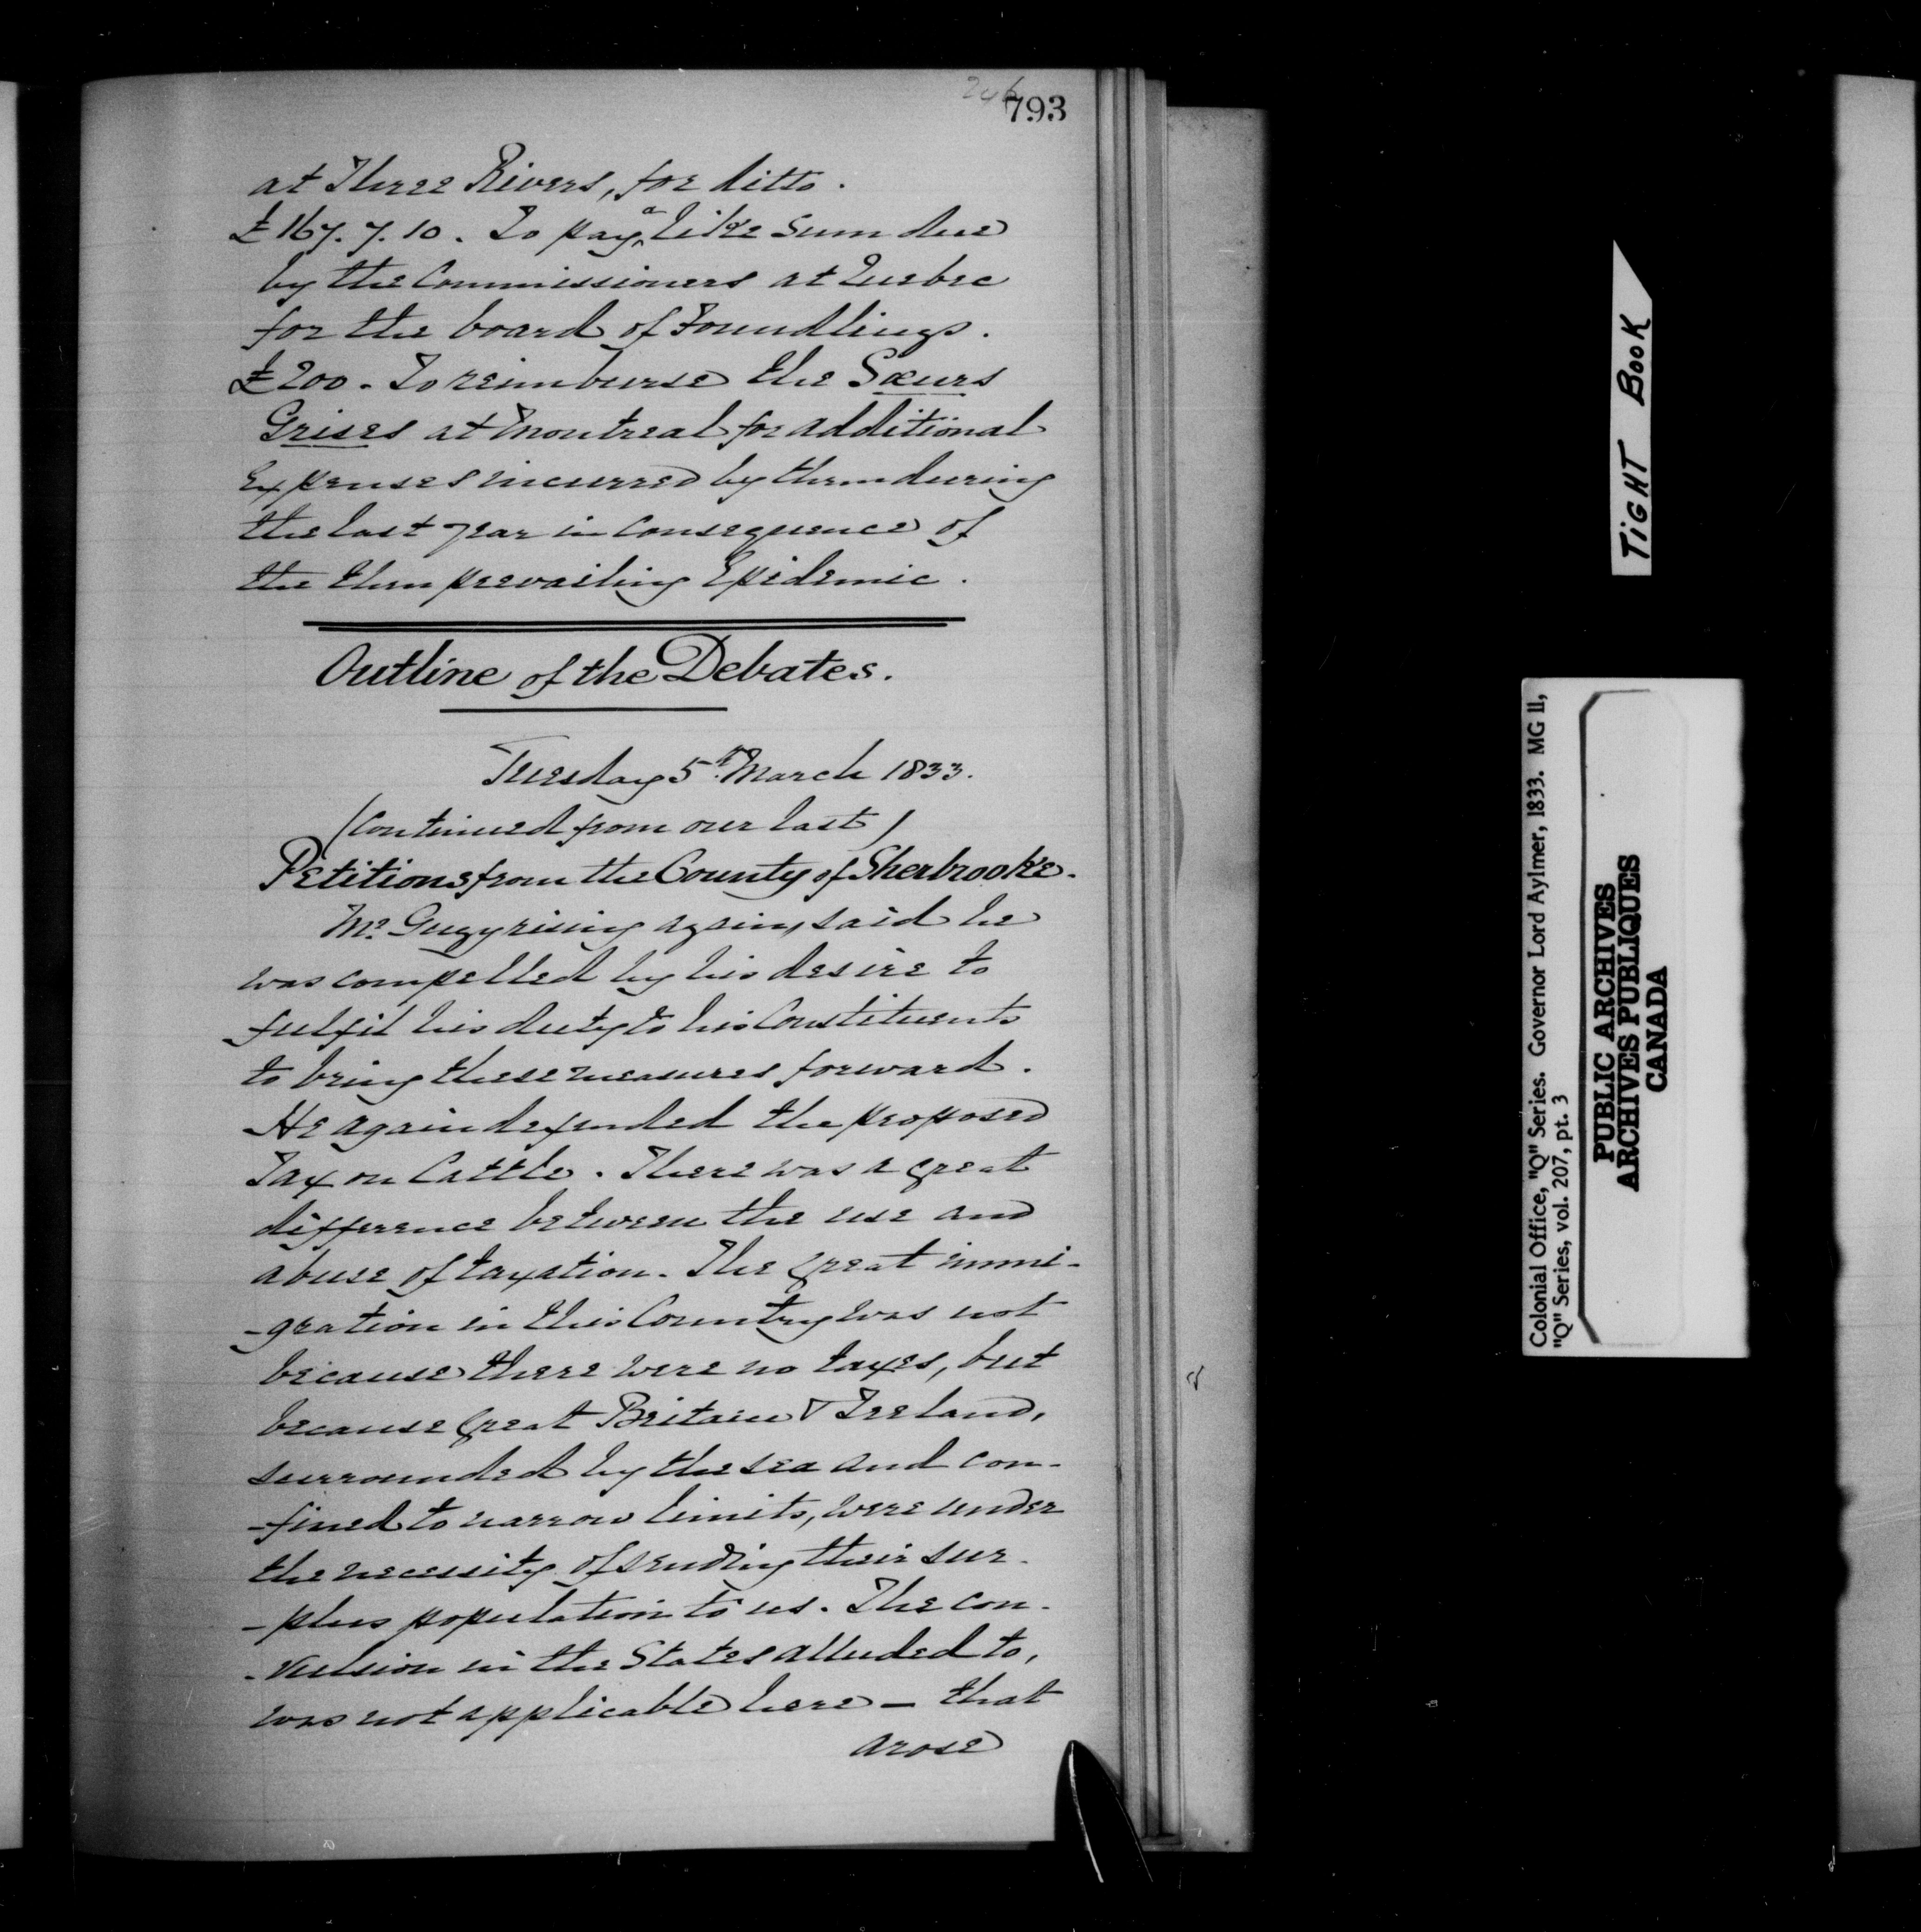 246
793
at Three Rivers, for ditto.
£167. 7. 10. To pay a like sum due
by the Commissioners at Quebec
for the board of Foundlings.
£200. To reimburse the Sœurs
Grises at Montreal for additional
Expenses incurred by them during
the last year in Consequence of
the then prevailing Epidemic.
Outline of the Debates.
Tuesday 5th March 1833.
(Continued from our last)
Petitions from the County of Sherbrooke.
Mr. Gugy rising again, said he
was compelled by his desire to
fulfil his duty to his Constituents
to bring these measures forward.
He again defended the proposed
Tax on Cattle. There was a great
difference between the use and
abuse of taxation. The great immi-
-gration in this Country was not
because there were no taxes, but
because Great Britain & Ireland,
surrounded by the sea and con-
-fined to narrow limits, were under
the necessity of sending their sur-
-plus population to us. The con-
-vulsion in the States alluded to,
was not applicable here — that
arose
TIGHT BOOK
Colonial Office, "Q" Series. Governor Lord Aylmer, 1833. MG 11,
"Q" Series, vol. 207, pt. 3
PUBLIC ARCHIVES
ARCHIVES PUBLIQUES
CANADA